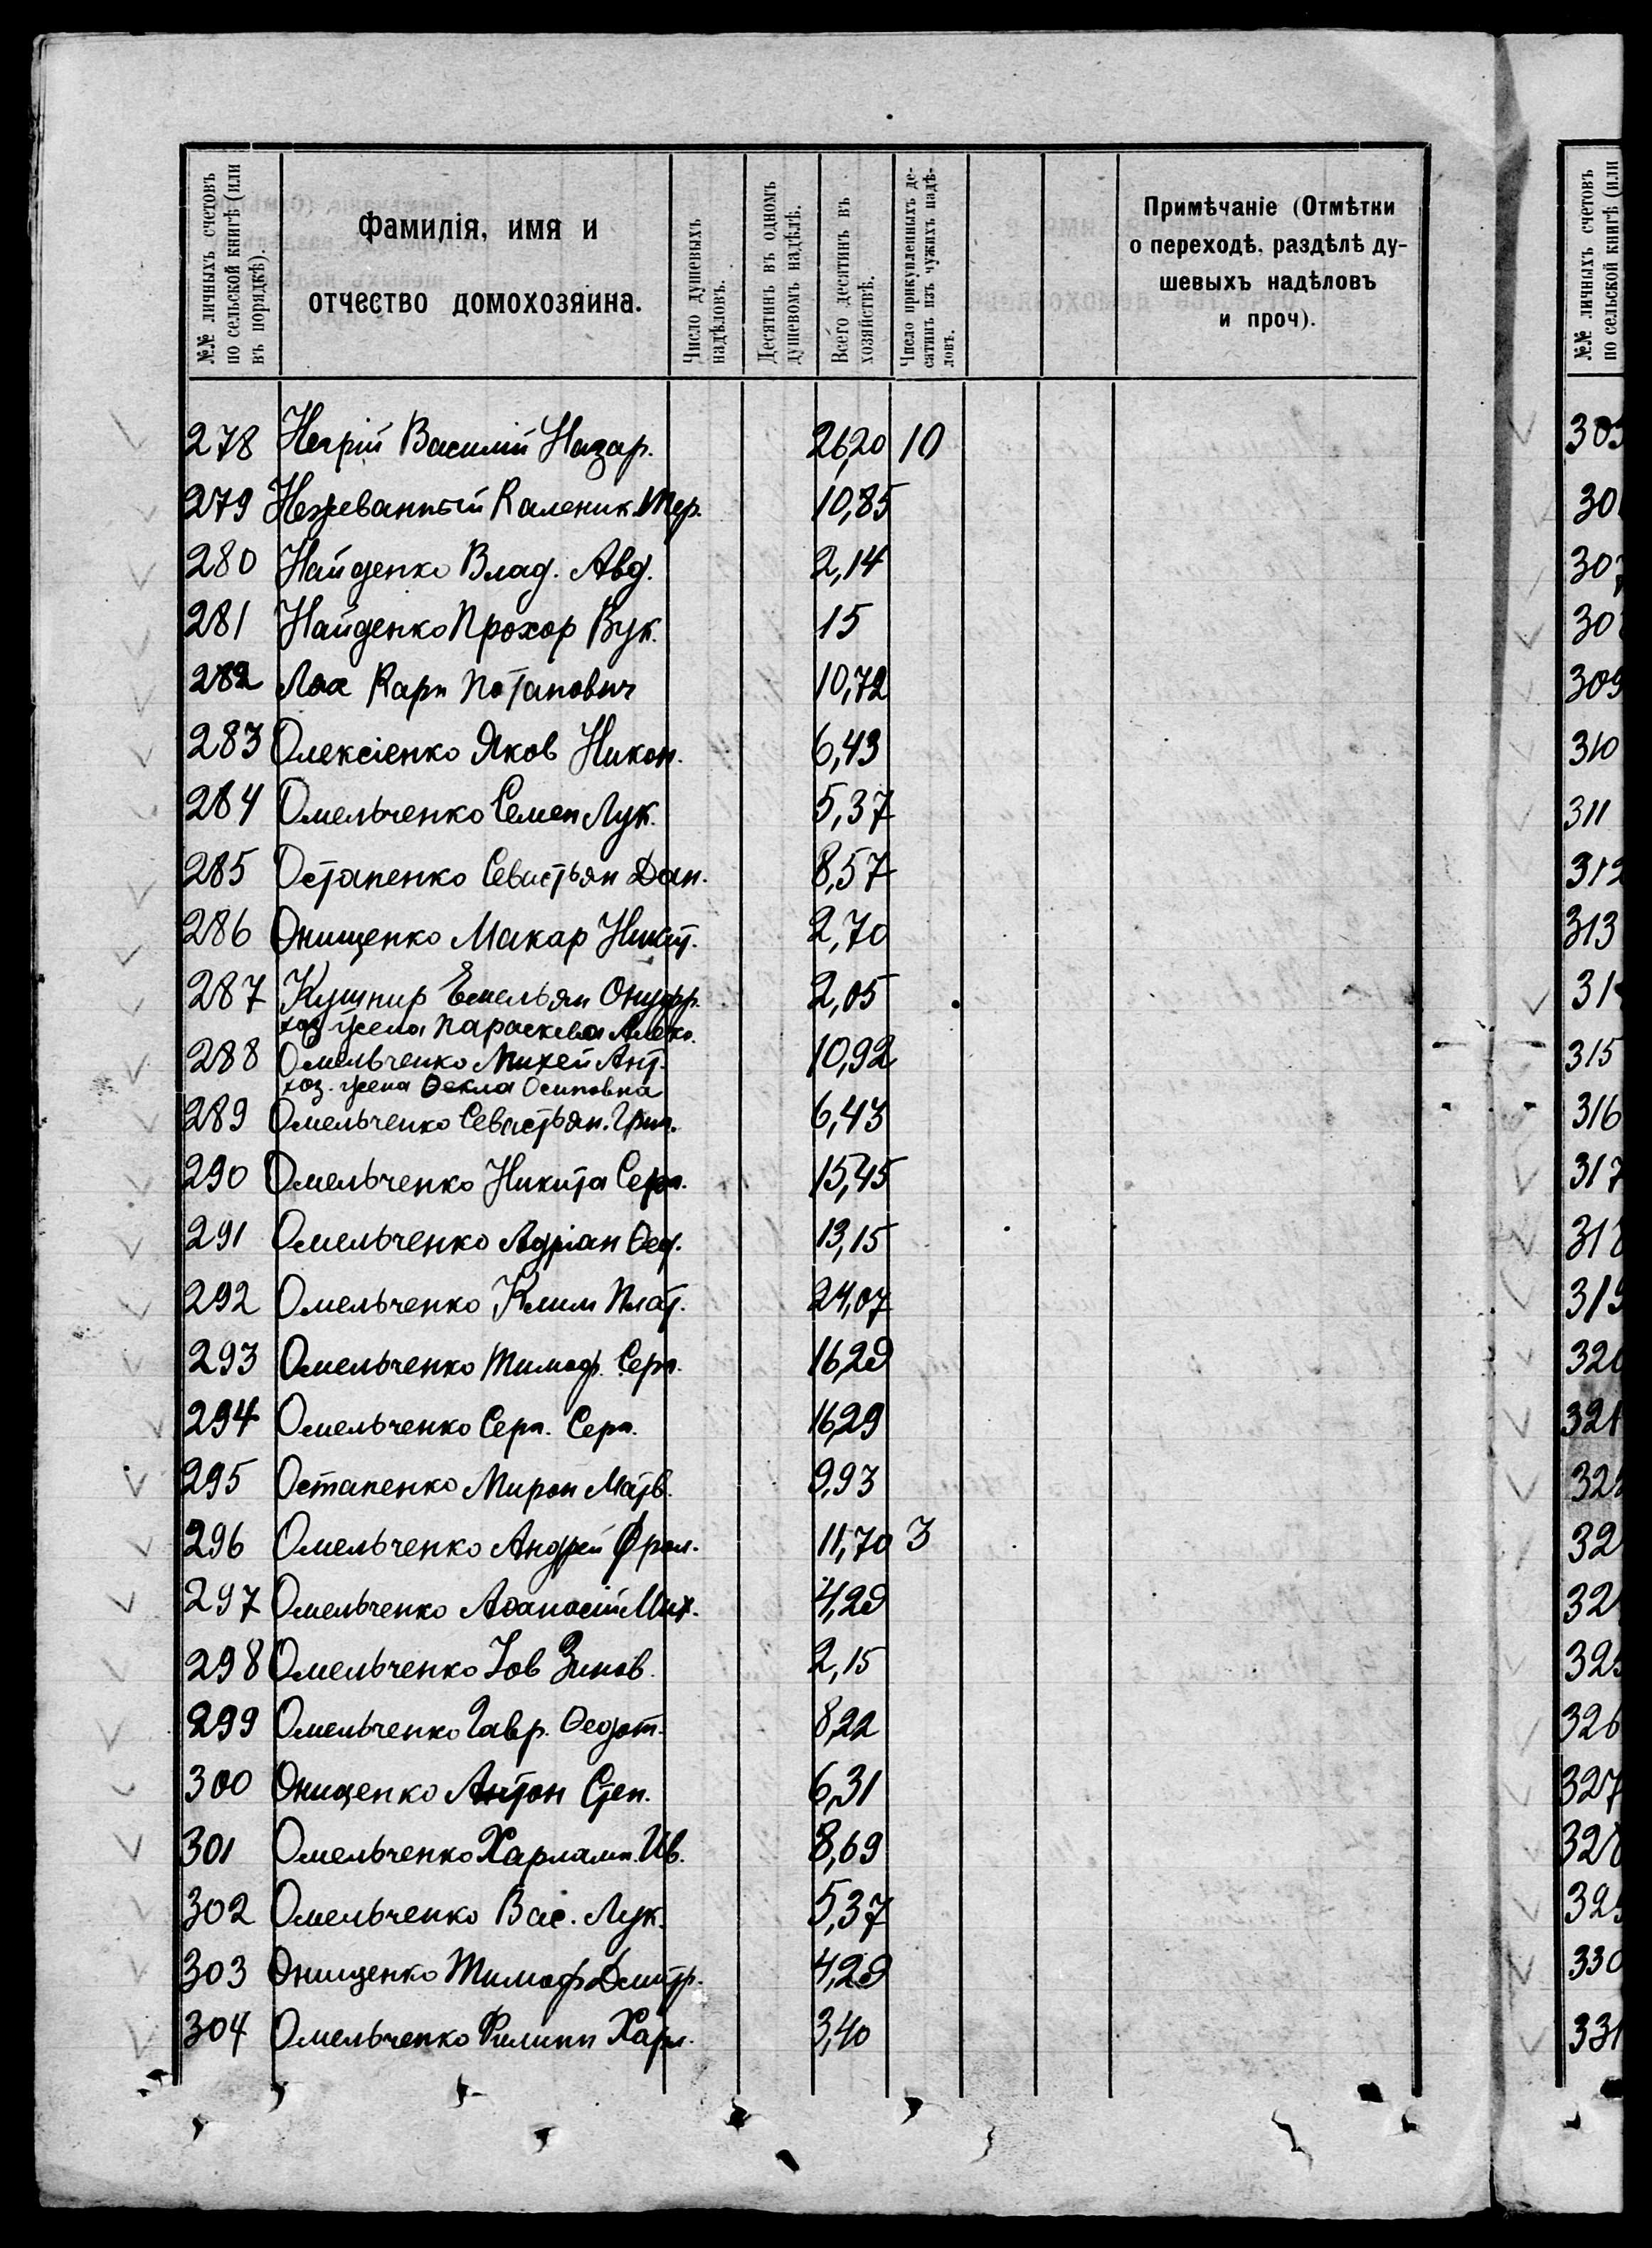 №№ личныхъ счетовъ по сельской книгѣ (или въ порядкѣ).
Фамилія, имя и отчество домохозяина.
Число душевыхъ надѣловъ.
Десятинъ въ одномъ душевомъ надѣлѣ.
Всего десятинъ въ хозяйствѣ.
Число прикупленныхъ десятинъ изъ чужихъ надѣловъ.
Примѣчаніе (Отмѣтки
о переходѣ, раздѣлѣ ду-
шевыхъ надѣловъ
и проч).
278 Негрій Василій Назар. 26,20 10
279 Нежеванный Каленик. Тер. 10,85
280 Найденко Влад. Авд. 2,14
281 Найденко Прохор Вук. 15
282 Лоа Карп Потапович 10,72
283 Олексіенко Яков Никон. 6,43
284 Омельченко Семен Лук. 5,37
285 Остапенко Севастьян Дан. 8,57
286 Онищенко Макар Никит. 2,70
287 Кушнир Емельян Онуфр. 2,05
хоз жена Параскева Алекс.
288 Омельченко Михей Ант. 10,92
хоз. жена Ѳекла Осиповна
289 Омельченко Севастьян. Григ. 6,43
290 Омельченко Никита Серг. 15,45
291 Омельченко Адріан Ѳед. 13,15
292 Омельченко Клим Плат. 24,07
293 Омельченко Тимоф. Серг. 16,29
294 Омельченко Серг. Серг. 16,29
295 Остапенко Мирон Матв. 9,93
296 Омельченко Андрей Фрол. 11,70 3
297 Омельченко Аѳанасій Мих. 4,29
298 Омельченко Іов Зинов. 2,15
299 Омельченко Гавр. Ѳедот. 8,22
300 Онищенко Антон Степ. 6,31
301 Омельченко Харламп. Ив. 8,69
302 Омельченко Вас. Лук. 5,37
303 Онищенко Тимоф Дмитр. 4,29
304 Омельченко Филипп Харл. 3,40
№№ личныхъ счетовъ по сельской книгѣ (или
307
309
310
311
312
313
315
316
317
318
319
320
321
326
327
328
330
331